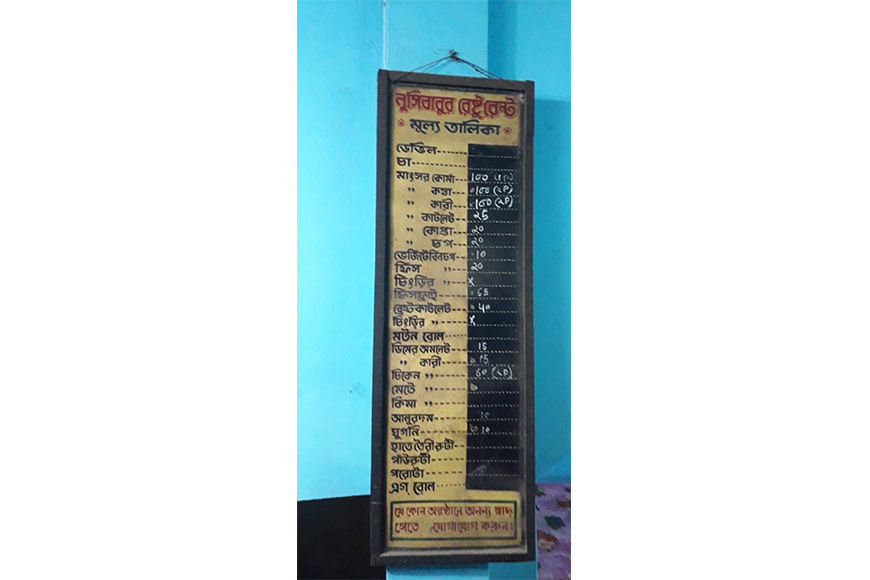 লুসিবাবুর রেষ্টুরেন্ট
মূল্য তালিকা
ডেভিল
চা
মাংসর কোর্মা 100 (2P)
" কষা 100 (2P)
" কারী 100 (2P)
" কাটলেট 25
" কোপ্তা 20
" চপ 20
ভেজিটেবিলচপ 10
ফিস " 20
চিংড়ির " x
ফিসফ্রাই 65
ব্রেষ্টকাটলেট 40
চিংড়ির " x
মটন রোল
ডিমের অমলেট 15
" কারী 15
চিকেন " 60 (2P)
মেটে "
কিমা "
আলুরদম 10
ঘুগনি 10
হাতে তৈরী রুটী
পাঁউরুটী
পরোটা
এগ্ রোল
যে কোন অনুষ্ঠানে অনন্য স্বাদ
পেতে যোগাযোগ করুন।